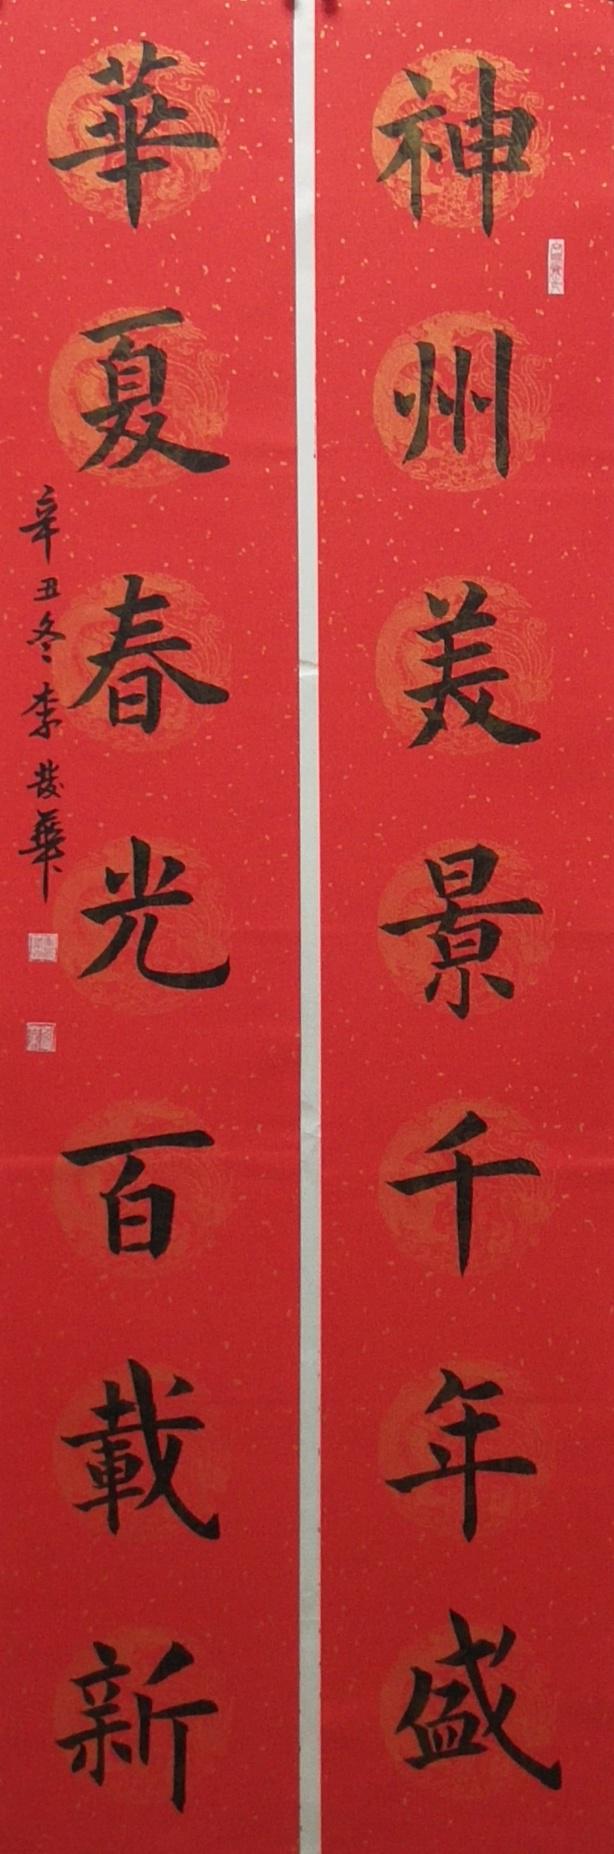 神州美景千年盛
華夏春光百載新
辛丑冬李發華